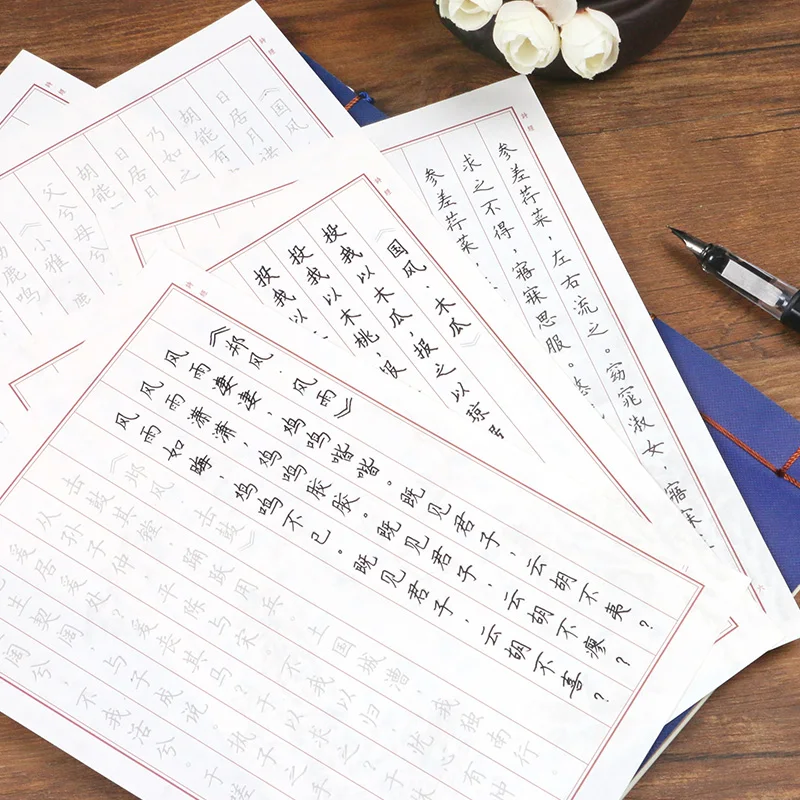 诗经
参差荇菜，左右流之。窈窕淑女，寤寐
求之不得，寤寐思服。悠
参差荇菜，
六
诗经
《国风·木瓜》
投我以木瓜，报之以琼
投我以木桃，
投我以
诗经
《国风
日居月诸
胡能有
乃如之
日居
胡能
父兮母兮，
《小雅·鹿
鹿鸣
诗经
《郑风·风雨》
风雨凄凄，鸡鸣喈喈。既见君子，云胡不夷？
风雨潇潇，鸡鸣胶胶。既见君子，云胡不瘳？
风雨如晦，鸡鸣不已。既见君子，云胡不喜？
《邶风·击鼓》
击鼓其镗，踊跃用兵。土国城漕，我独南行
从孙子仲，平陈与宋。不我以归，忧心有忡
爰居爰处？爰丧其马？于以求之？于林
生契阔，与子成说。执子之手
阔兮，不我活兮。于嗟